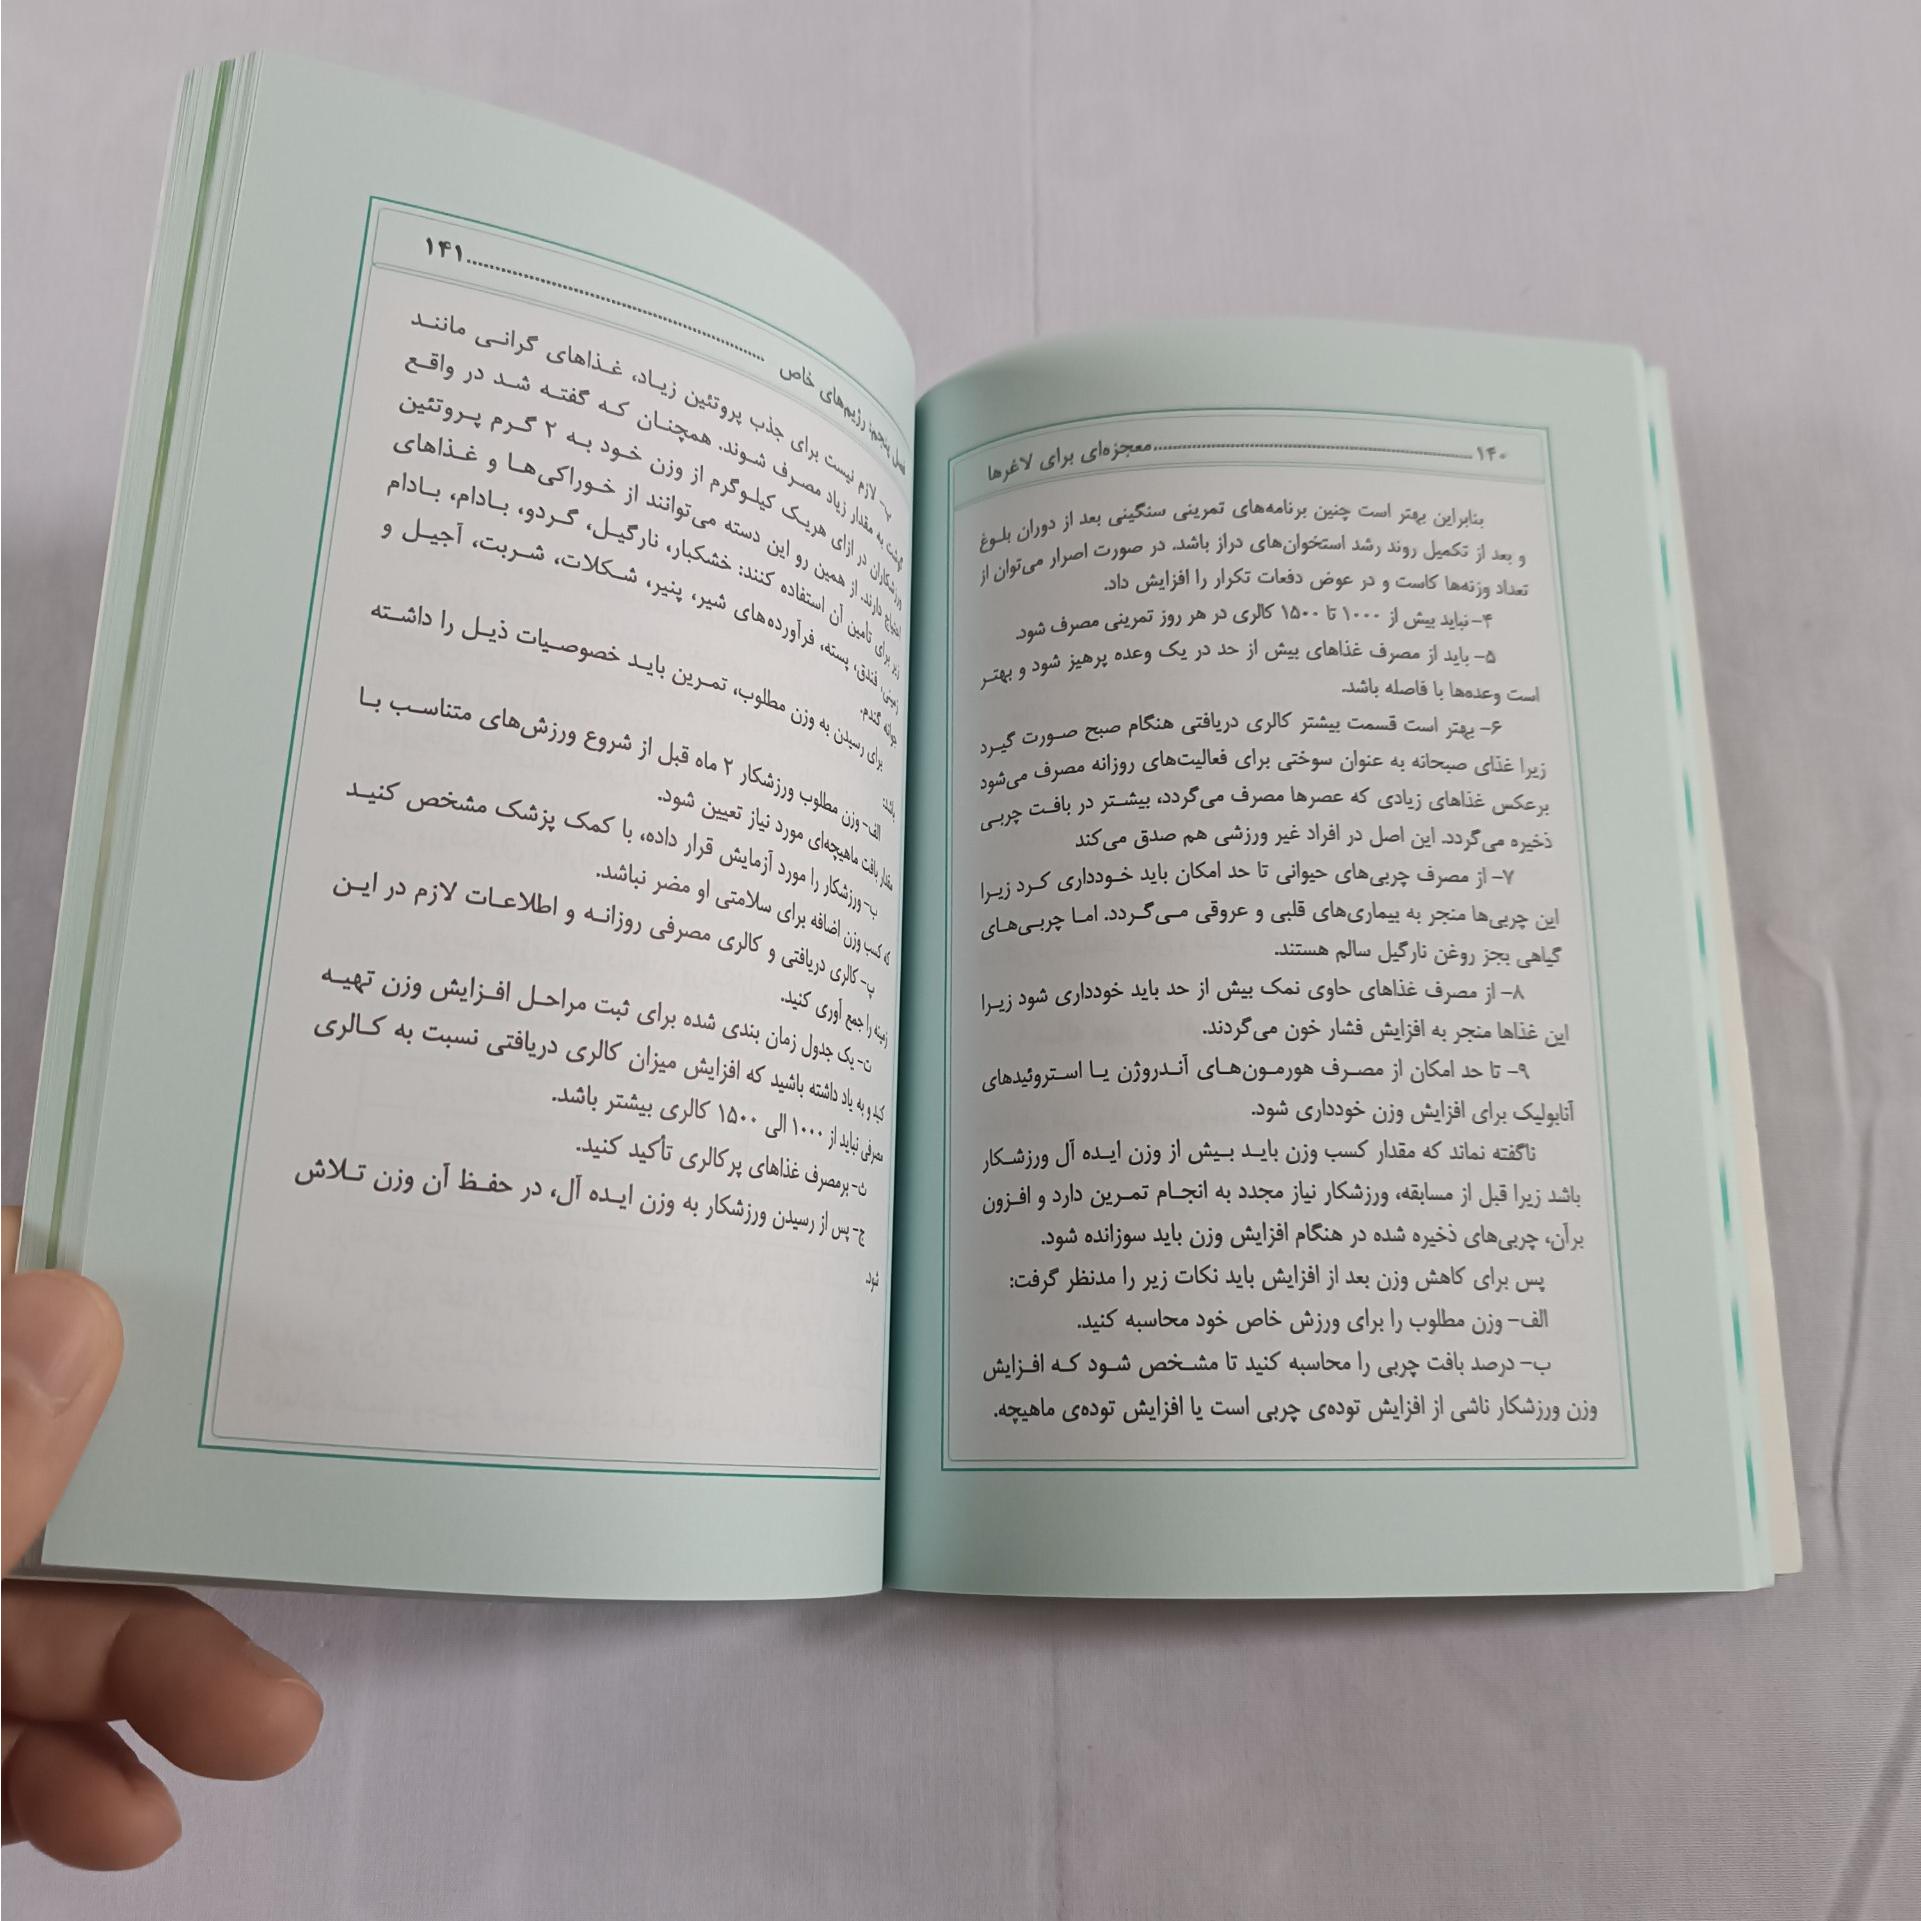 ۱۴۰ معجزه‌ای برای لاغرها
بنابراین بهتر است چنین برنامه‌های تمرینی سنگینی بعد از دوران بلوغ
و بعد از تکمیل روند رشد استخوان‌های دراز باشد. در صورت اصرار می‌توان از
تعداد وزنه‌ها کاست و در عوض دفعات تکرار را افزایش داد.
۴- نباید بیش از ۱۰۰۰ تا ۱۵۰۰ کالری در هر روز تمرینی مصرف شود.
۵- باید از مصرف غذاهای بیش از حد در یک وعده پرهیز شود و بهتر
است وعده‌ها با فاصله باشد.
۶- بهتر است قسمت بیشتر کالری دریافتی هنگام صبح صورت گیرد
زیرا غذای صبحانه به عنوان سوختی برای فعالیت‌های روزانه مصرف می‌شود
برعکس غذاهای زیادی که عصرها مصرف می‌گردد، بیشتر در بافت چربی
ذخیره می‌گردد. این اصل در افراد غیر ورزشی هم صدق می‌کند
۷- از مصرف چربی‌های حیوانی تا حد امکان باید خودداری کرد زیرا
این چربی‌ها منجر به بیماری‌های قلبی و عروقی می‌گردد. اما چربی‌های
گیاهی بجز روغن نارگیل سالم هستند.
۸- از مصرف غذاهای حاوی نمک بیش از حد باید خودداری شود زیرا
این غذاها منجر به افزایش فشار خون می‌گردند.
۹- تا حد امکان از مصرف هورمون‌های آندروژن یا استروئیدهای
آنابولیک برای افزایش وزن خودداری شود.
ناگفته نماند که مقدار کسب وزن باید بیش از وزن ایده آل ورزشکار
باشد زیرا قبل از مسابقه، ورزشکار نیاز مجدد به انجام تمرین دارد و افزون
برآن، چربی‌های ذخیره شده در هنگام افزایش وزن باید سوزانده شود.
پس برای کاهش وزن بعد از افزایش باید نکات زیر را مدنظر گرفت:
الف- وزن مطلوب را برای ورزش خاص خود محاسبه کنید.
ب- درصد بافت چربی را محاسبه کنید تا مشخص شود که افزایش
وزن ورزشکار ناشی از افزایش توده‌ی چربی است یا افزایش توده‌ی ماهیچه.
فصل پنجم: رژیم‌های خاص ۱۴۱
پ- لازم نیست برای جذب پروتئین زیاد، غذاهای گرانی مانند
گوشت به مقدار زیاد مصرف شوند. همچنان که گفته شد در واقع
ورزشکاران در ازای هریک کیلوگرم از وزن خود به ۲ گرم پروتئین
احتیاج دارند. از همین رو این دسته می‌توانند از خوراکی‌ها و غذاهای
زیر برای تأمین آن استفاده کنند: خشکبار، نارگیل، گردو، بادام، بادام
زمینی، فندق، پسته، فرآورده‌های شیر، پنیر، شکلات، شربت، آجیل و
جوانه گندم.
برای رسیدن به وزن مطلوب، تمرین باید خصوصیات ذیل را داشته
باشد:
الف- وزن مطلوب ورزشکار ۲ ماه قبل از شروع ورزش‌های متناسب با
مقدار بافت ماهیچه‌ای مورد نیاز تعیین شود.
ب- ورزشکار را مورد آزمایش قرار داده، با کمک پزشک مشخص کنید
که کسب وزن اضافه برای سلامتی او مضر نباشد.
پ- کالری دریافتی و کالری مصرفی روزانه و اطلاعات لازم در این
زمینه را جمع آوری کنید.
ت- یک جدول زمان بندی شده برای ثبت مراحل افزایش وزن تهیه
کنید و به یاد داشته باشید که افزایش میزان کالری دریافتی نسبت به کالری
مصرفی نباید از ۱۰۰۰ الی ۱۵۰۰ کالری بیشتر باشد.
ث- برمصرف غذاهای پرکالری تأکید کنید.
ج- پس از رسیدن ورزشکار به وزن ایده آل، در حفظ آن وزن تلاش
شود.